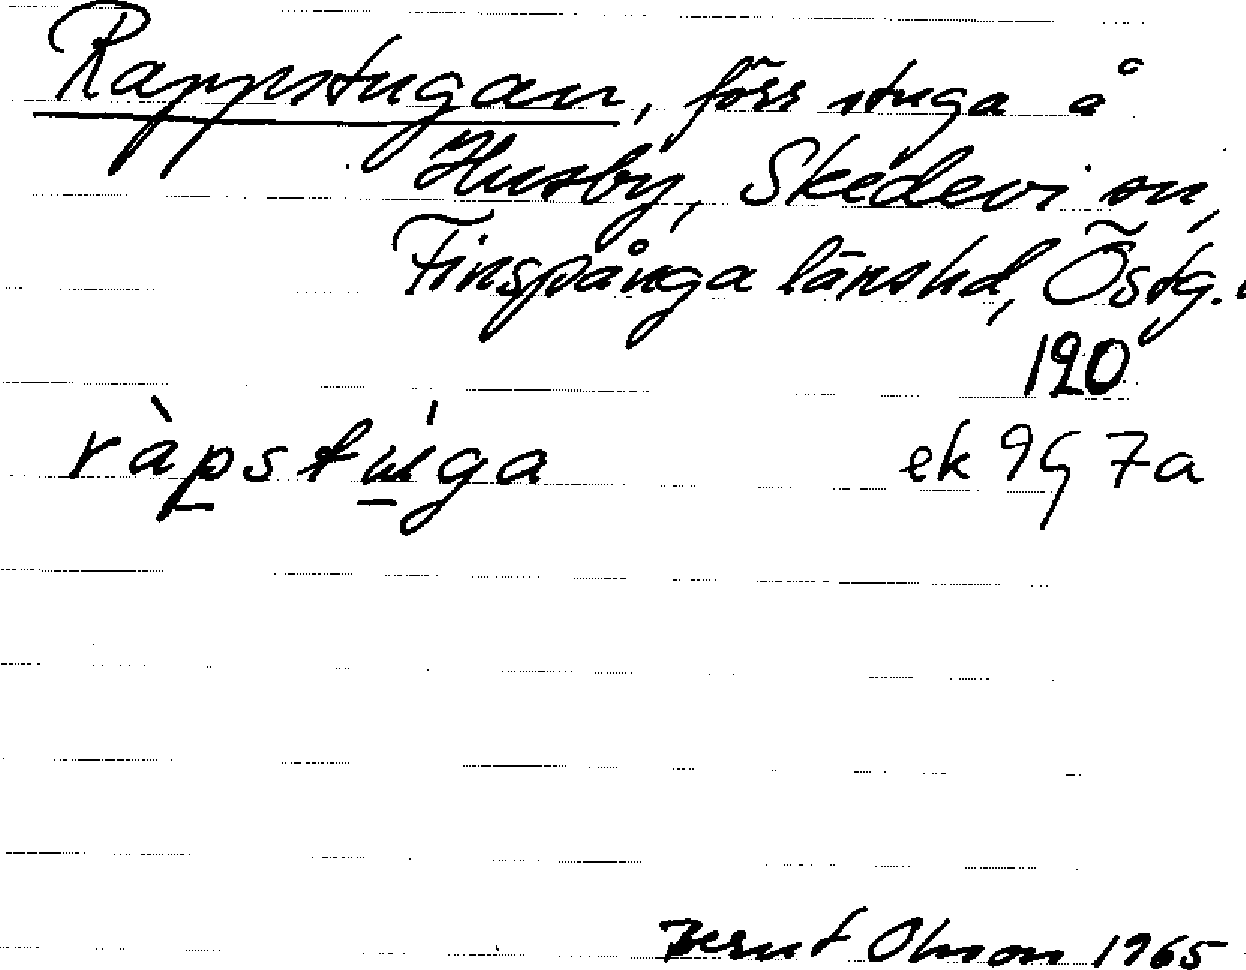 Rappstugan, förr stuga å
Husby, Skedevi sn,
Finspånga länshd, Östg.
120
ràpstúga ek 9G 7a
Bernt Olsson 1965